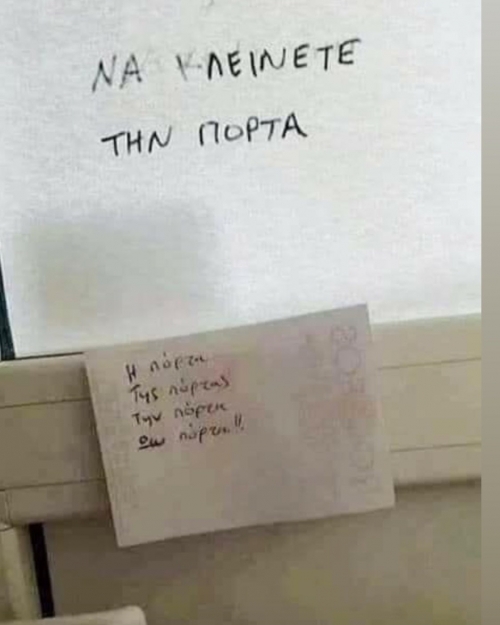 ΝΑ ΚΛΕΙΝΕΤΕ
ΤΗΝ ΠΟΡΤΑ
Η πόρτα
Της πόρτας
Την πόρτα
Ωω πόρτα!!